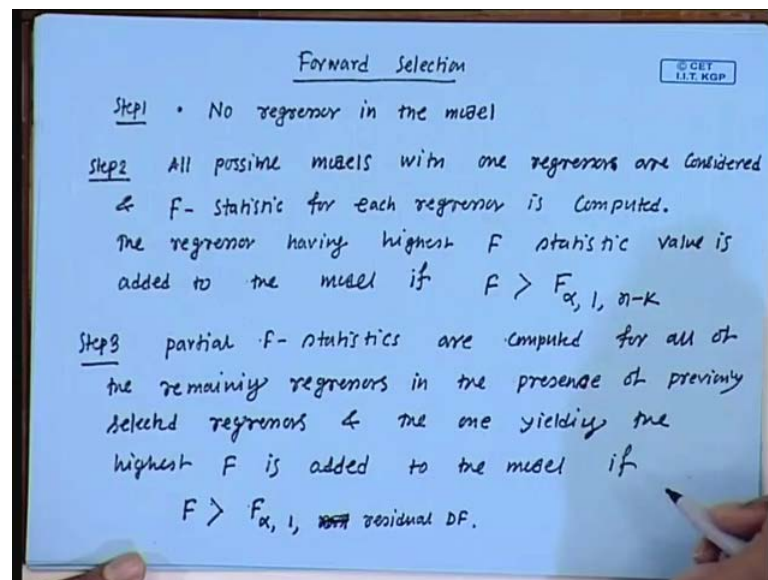 Forward Selection
© CET
I.I.T. KGP
Step1 • No regressor in the model
Step2 All possible models with one regressors are considered
& F- Statistic for each regressor is computed.
The regressor having highest F statistic value is
added to the model if F > Fα, 1, n-K
Step3 partial F- statistics are computed for all of
the remaining regressors in the presence of previously
selected regressors & the one yielding the
highest F is added to the model if
F > Fα, 1, residual DF.